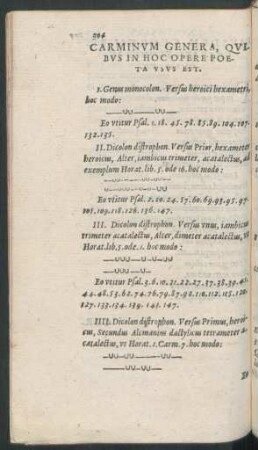 294
CARMINVM GENERA, QVI-
BVS IN HOC OPERE POE-
TA VSVS EST.
I. Genus monocolon. Versus heroici hexametri
hoc modo:
Eo vtitur Psal. 1. 18. 45. 78. 85. 89. 104. 107.
132. 135.
II. Dicolon distrophon. Versus Prior, hexameter
heroicus, Alter, iambicus trimeter, acatalectus, ad
exemplum Horat. lib. 5. ode 16. hoc modo:
Eo vtitur Psal. 2. 20. 24. 57. 60. 69. 93. 95. 97.
103. 109. 118. 126. 136. 147.
III. Dicolon distrophon. Versus vnus, iambicus
trimeter acatalectus, Alter, dimeter acatalectus, vt
Horat. lib. 5. ode. 1. hoc modo:
Eo vtitur Psal. 3. 6. 10. 21. 22. 27. 37. 38. 39. 41.
44. 48. 59. 62. 74. 76. 79. 87. 92. 110. 112. 115. 120.
127. 133. 134. 139. 143. 147.
IIII. Dicolon distrophon. Versus Primus, heroi-
cus, Secundus Alcmanius dactylicus tetrameter a-
catalectus, vt Horat. 1. Carm. 7. hoc modo: